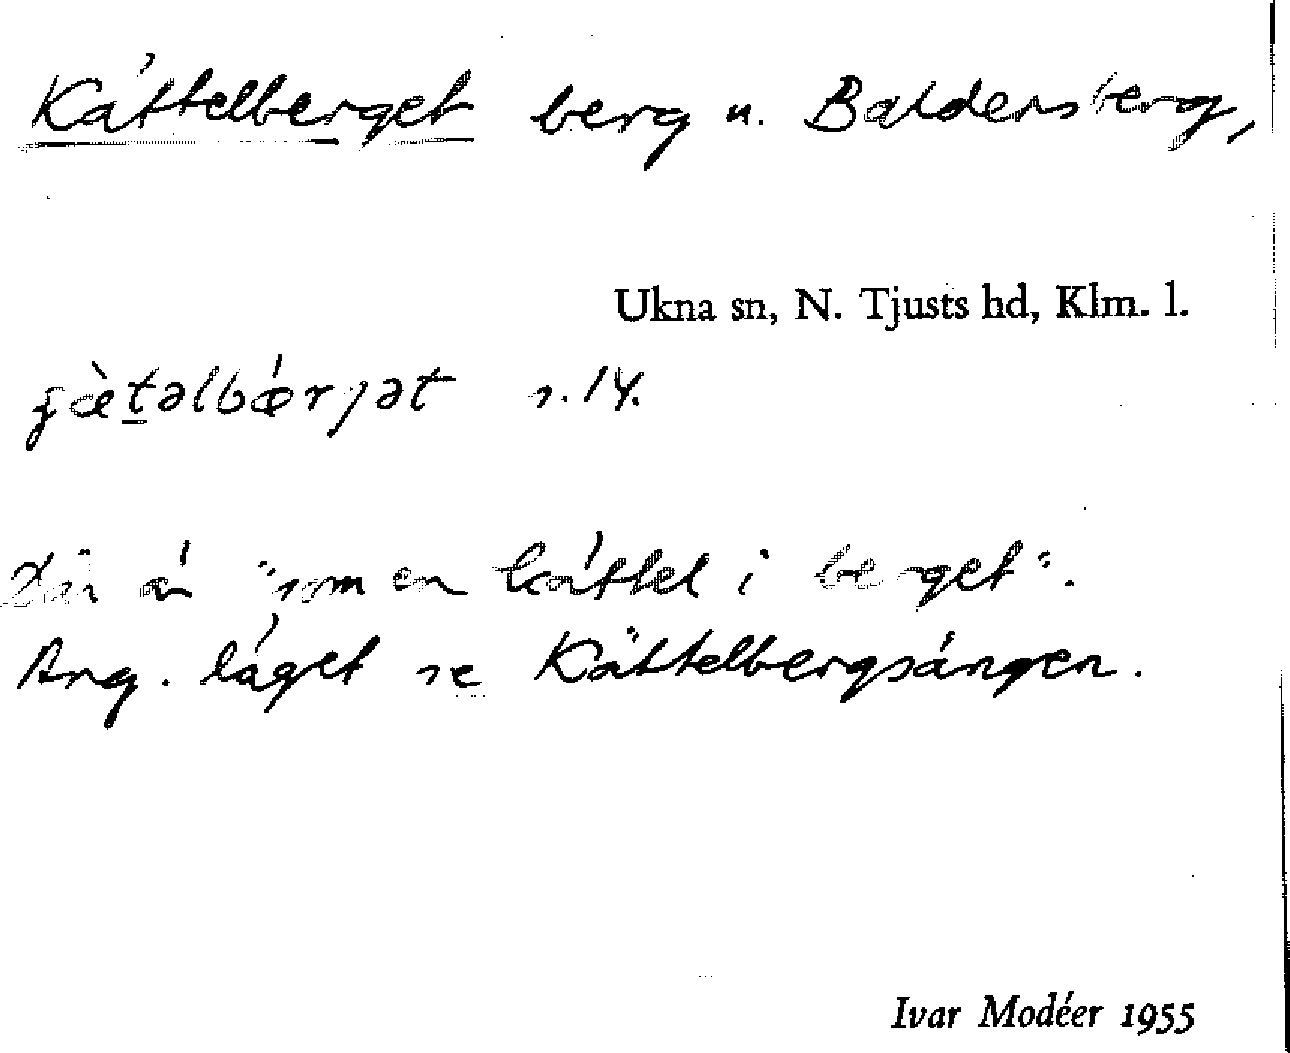 Kättelberget berg u. Baldersberg,
Ukna sn, N. Tjusts hd, Klm. l.
s. 14.
Där är "som en kättel i berget".
Ang. läget se Kättelbergsängen.
Ivar Modéer 1955